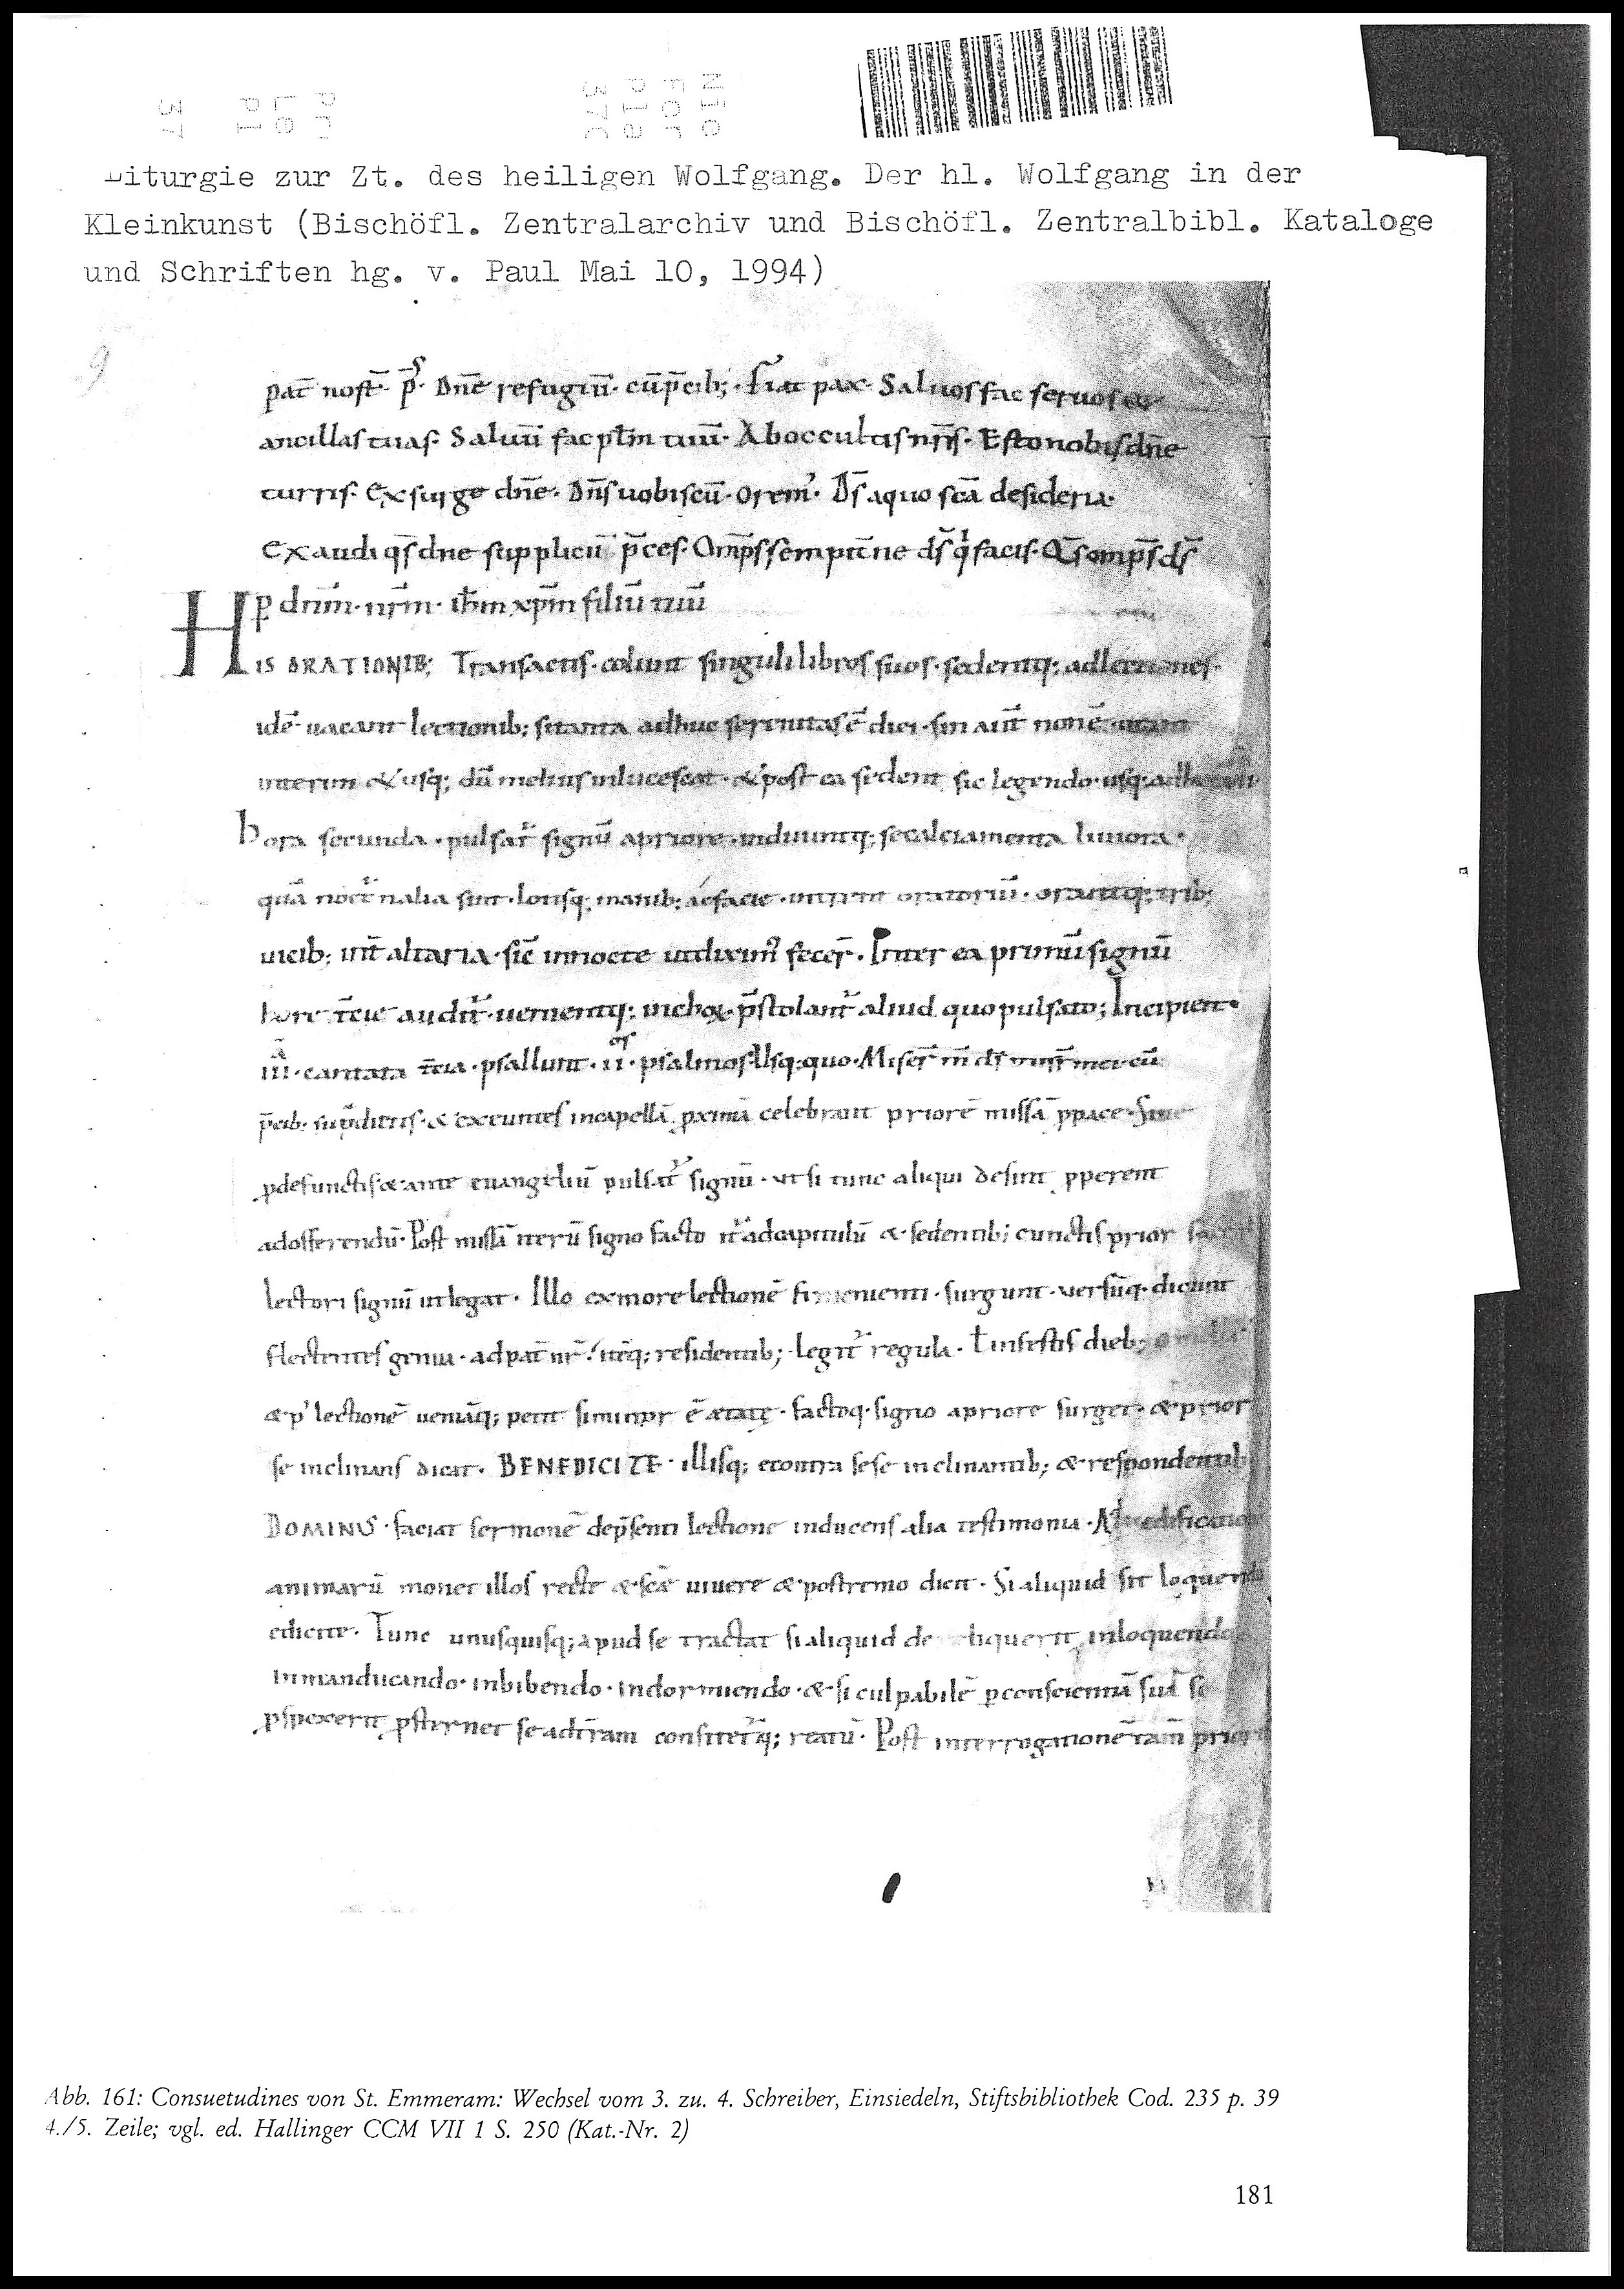 Liturgie zur Zt. des heiligen Wolfgang. Der hl. Wolfgang in der
Kleinkunst (Bischöfl. Zentralarchiv und Bischöfl. Zentralbibl. Kataloge
und Schriften hg. v. Paul Mai 10, 1994)
9
pat̄ nost̄· p̄s· Dn̄e refugiū· cū p̄cib;· Fiat pax· Saluos fac seruos
ancillas tuas· Saluū fac pl̄m tuū· Ab occultis nr̄is· Esto nobis dn̄e
turris· Exsurge dn̄e· Dn̄s uobiscū· Orem̄· D̄s a quo sc̄a desideria·
Exaudi qs̄ dn̄e supplicū p̄ces· Omp̄s sempit̄ne ds̄ q̄ facis· Qs̄ omp̄s ds̄
p dn̄m· nr̄m· ih̄m xp̄m filiū tuū
HIS ORATIONIB; Transactis· singuli libros suos· sedentq; ad lectiones·
idē uacant lectionib; si tanta adhuc serenitas ē diei· sin aut̄ non ē
interim & usq; dū melius inlucescat· & post ea sedent sic legendo· usq;
hora secunda· pulsat̄ signū a priore· induuntq; se calciamenta
quā noct̄nalia sunt· lotisq; manib; ac facie· intrent oratoriū· orantq; trib;
uicib; int̄ altaria· sic̄ in nocte ut dixim̄ fecer̄· Inter ea primū signū
hore t̄cie audit̄· uenientq; p̄stolant̄ aliud quo pulsato; Incipient·
cantata t̄cia· psallunt· ii· psalmos· Usq; quo· Miser̄ m̄ ds̄ mei cū
p̄cib; & exeuntes in capellā pximā celebrant priorē missā p pace· Siue
p defunctis· & ante euangeliū pulsat̄ signū· ut si tunc aliqui desint pperent
ad offerendū· Post missā iterū signo facto it̄ ad capitulū & sedentib; cunctis prior
lectori signū ut legat· Illo ex more lectionē finienti· surgunt· uersūq· dicunt
flectentes genua· ad pat̄ nr̄· itēq; residentib;· legit̄ regula· ł in festis dieb;
& p' lectionē ueniāq; petit si minor ē ætate· factoq· signo a priore surget· & prior
se inclinans dicit· BENEDICITE· illisq; econtra sese inclinantib; & respondentib
DOMINUS· faciat sermonē de p̄senti lectione inducens alia testimonia·
animarū monet illos recte & sc̄e uiuere & postremo dicit· Si aliquid sit
edicite· Tunc unusquisq; apud se tractat si aliquid in loquendo
in manducando· in bibendo· in dormiendo· & si culpabilē p conscientiā suā se
pspexerit psternet se ad t̄ram confitet̄q; reatū· Post interrogationē tam̄
Abb. 161: Consuetudines von St. Emmeram: Wechsel vom 3. zu. 4. Schreiber, Einsiedeln, Stiftsbibliothek Cod. 235 p. 39
4./5. Zeile; vgl. ed. Hallinger CCM VII 1 S. 250 (Kat.-Nr. 2)
181